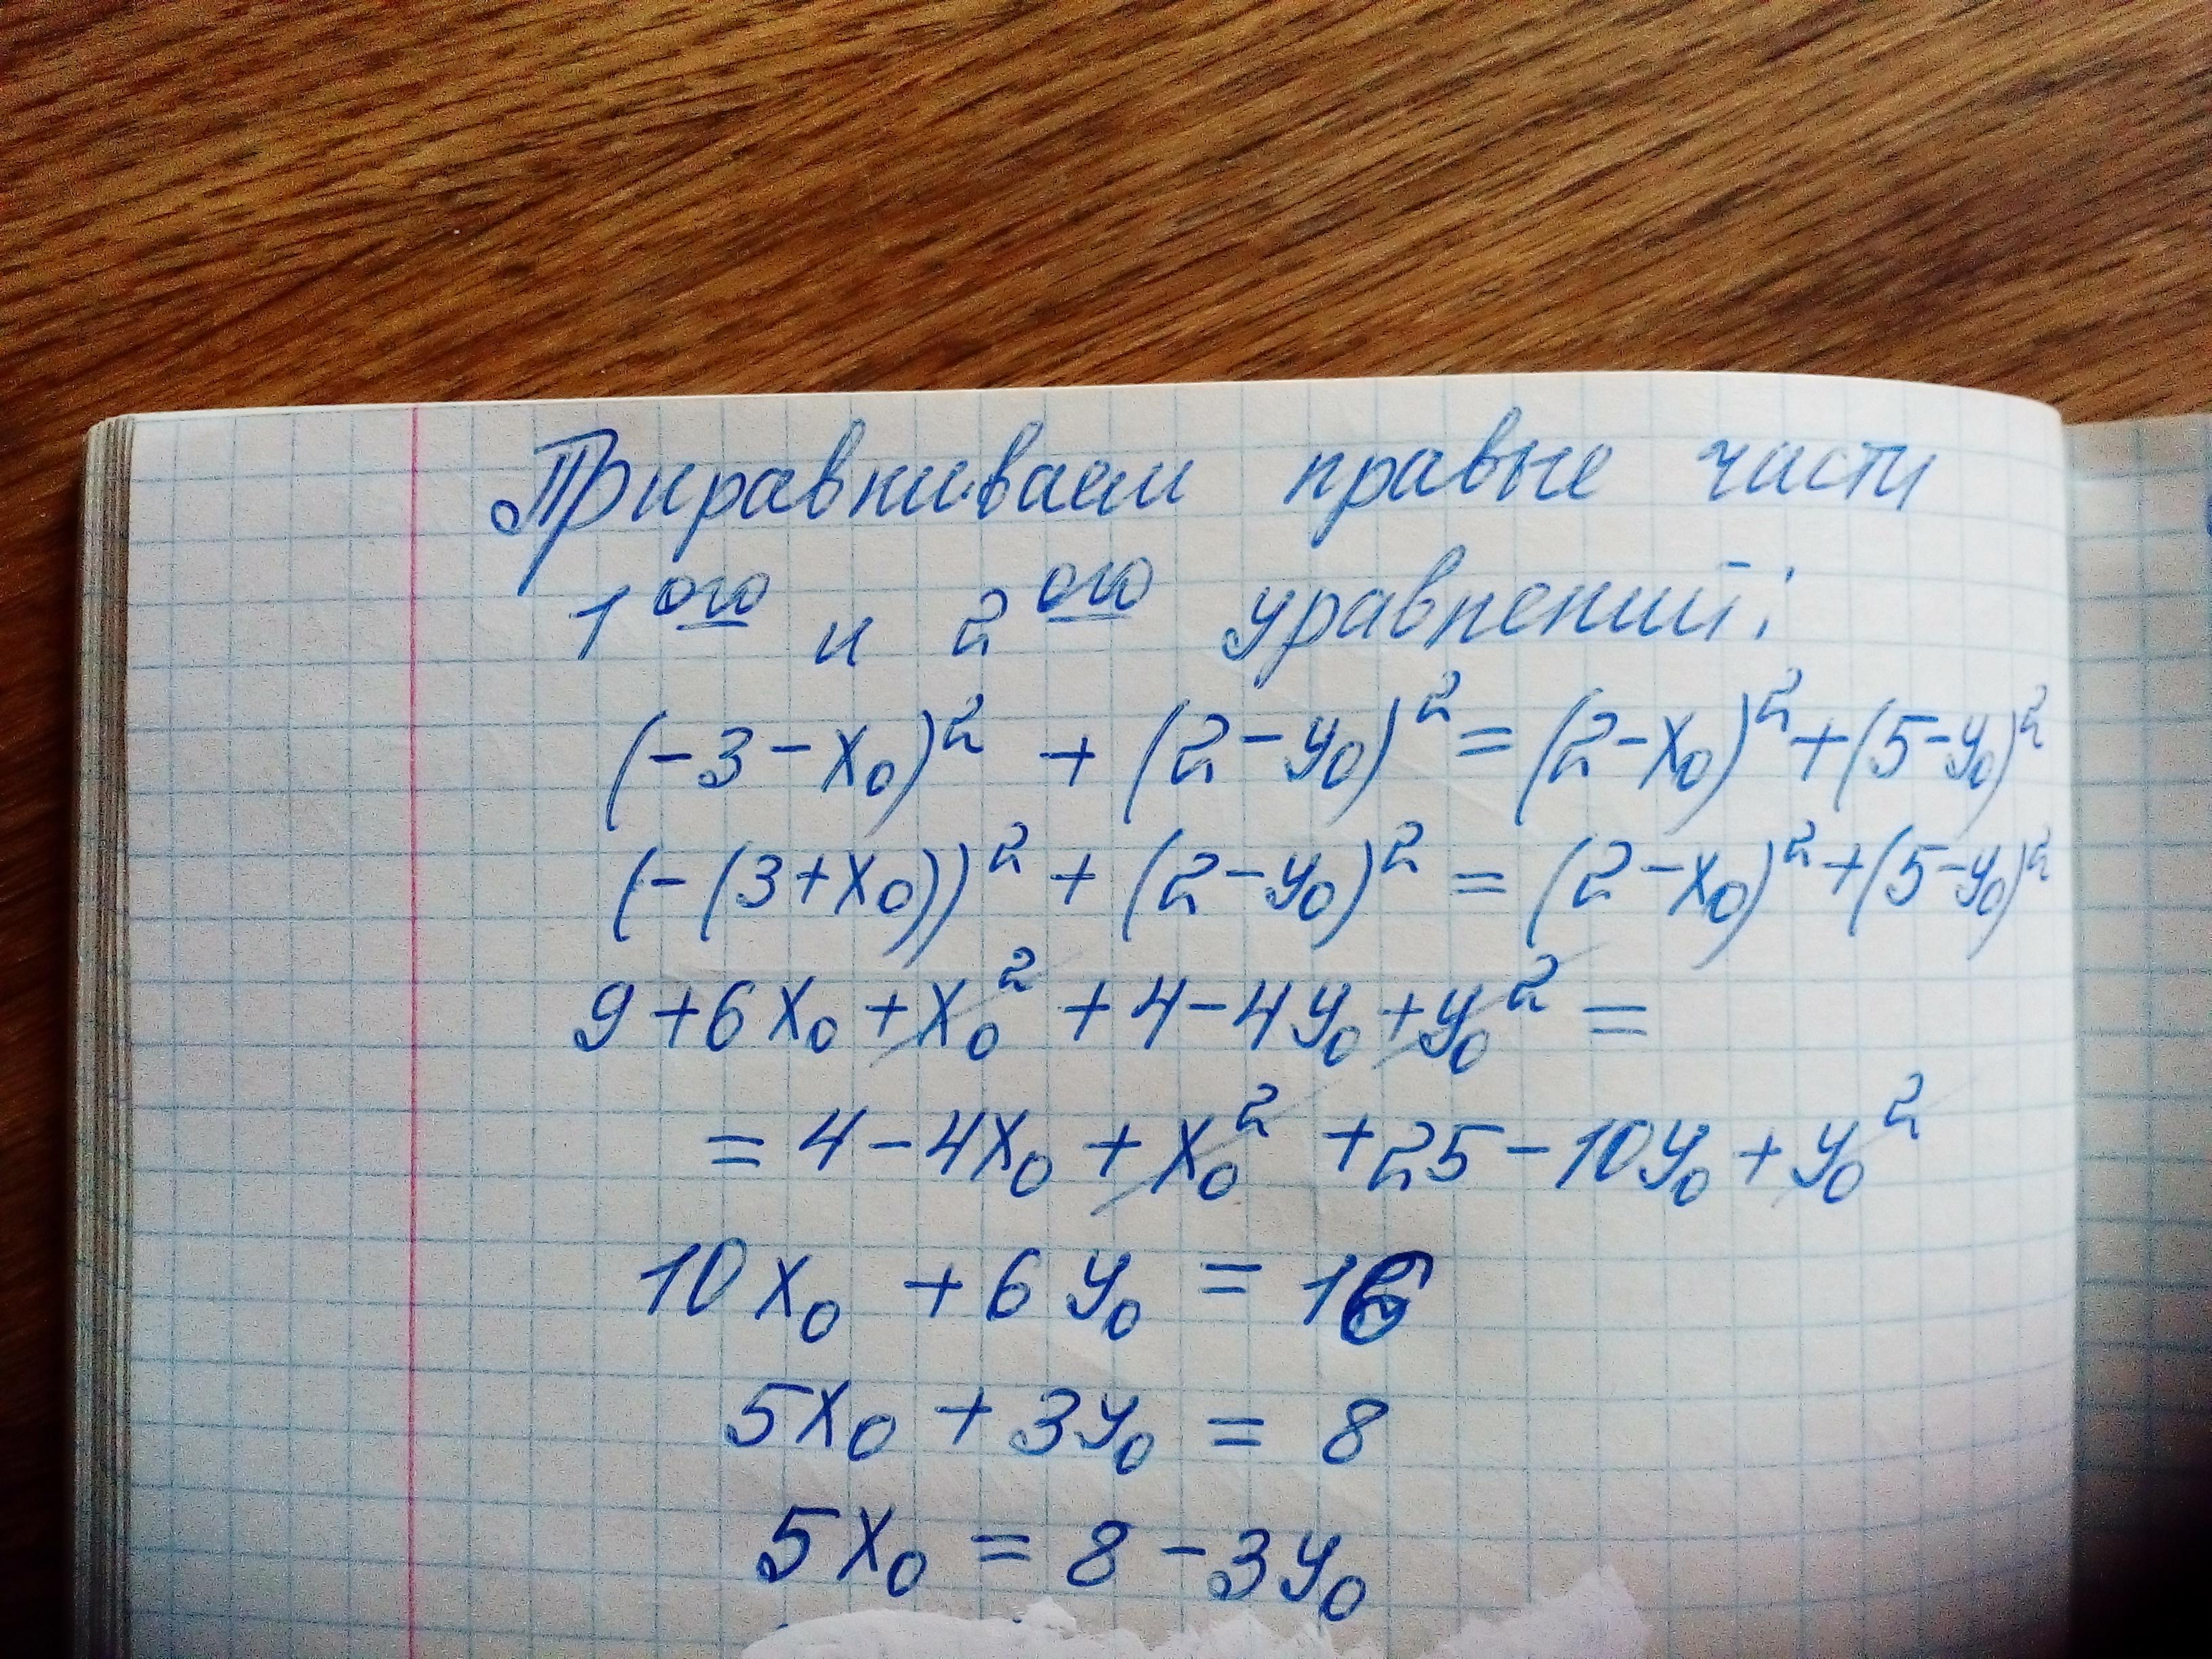 Приравниваем правые части
1ого и 2ого уравнений:
(-3-x₀)² + (2-y₀)² = (2-x₀)² + (5-y₀)²
(-(3+x₀))² + (2-y₀)² = (2-x₀)² + (5-y₀)²
9+6x₀+x₀²+4-4y₀+y₀² =
= 4-4x₀+x₀²+25-10y₀+y₀²
10x₀ + 6y₀ = 16
5x₀ + 3y₀ = 8
5x₀ = 8-3y₀